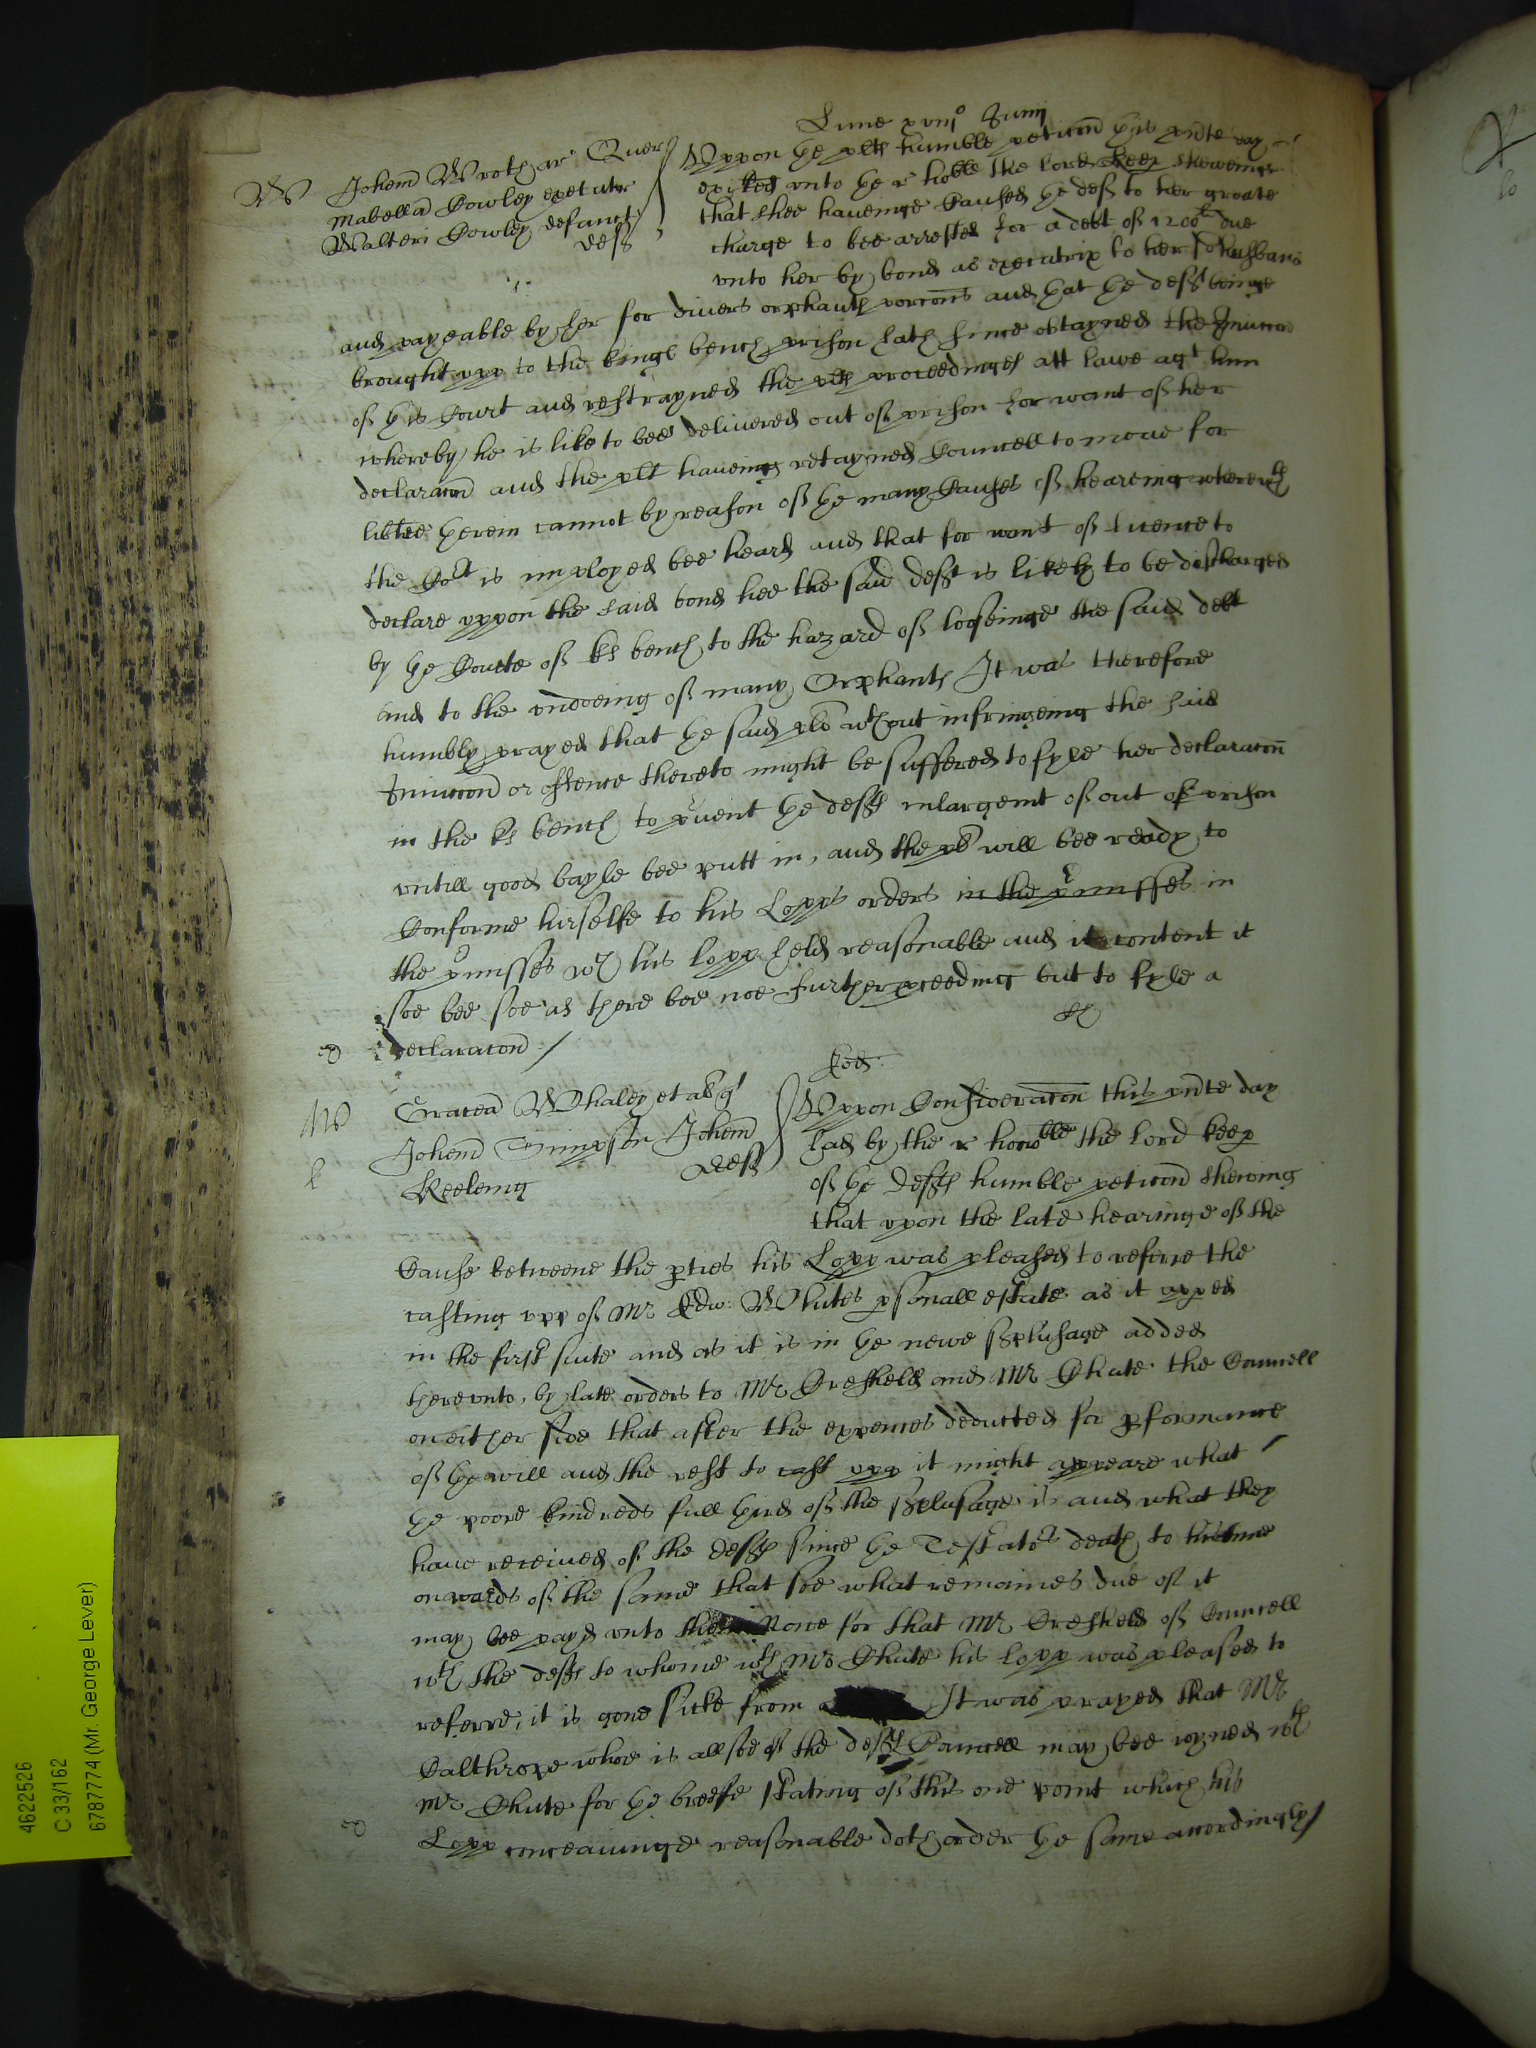 Lune xviij° Junij
W Johem Wroth ar Quer
Mabella Cowley executr
Walteri Cowley defunct
def
Uppon the plts humble peticon this pnte day
exited unto the r hoble the lord keep sheweing
that shee haueinge Caused the def to her greate
charge to bee arrested for a debt of 1200li due
unto her by bond as executrix to her husband
and payeable by her for divers orphants porcons and that the deft beinge
brought upp to the kings bench prison hath since obtayned the Iniuccon
of this Court and restrayned the plts proceedinges att lawe agt him
whereby he is like to bee delivered out of prison for want of her
declaracon and the plt haueing retayned Councell to moue for
libtee herein cannot by reason of the many Causes of heareing wherewth
the Cort is imployed bee heard and that for want of licence to
declare uppon the said bond hee the said deft is likely to be discharged
by the Courte of ks bench to the hazard of looseinge the said debt
and to the undoeing of many Orphants It was therefore
humbly prayed that the said plt wthout infringeing the said
Iniuccon or offence thereto might be suffered to fyle her declaracon
in the ks bench to pvent the defts inlargemt of out of prison
untill good bayle bee putt in, and the plt will bee ready to
Conforme hirselfe to his Lopps orders in the pmisses in
the pmisses wch his lopp held reasonable and is content it
soe bee soe as there bee noe further pceeding but to fyle a
declaracon /
Eod:
Gracea Whaley et al qr
Johem Simpson Johem
Keeleing
deff
Uppon Consideracon this pnte day
had by the r honoble the lord keep
of the defts humble peticon shewing
that upon the late hearinge of the
Cause betweene the pties his Lopp was pleased to referre the
casting upp of Mr Edw: Whites psonall estate as it apped
in the first suite and as it is in the newe Splusage added
thereunto, by late orders to Mr Creskeld and Mr Chute the Councell
on either side that after the expences deducted for pformance
of the will and the rest to cast upp it might appeare what
the poore kindreds full third of the Splusage is and what they
have received of the defts since the Testators death to this time
onwards of the same that soe what remaines due of it
may bee payd unto them Nowe for that Mr Creskeld of Councell
wth the defts to whome wth Mr Chute his lopp was pleased to
referre, it is gone sicke from It was prayed that Mr
Calthrope whoe is allsoe of the defts Councell may bee ioyned wth
Mr Chute for the breefe stating of this one point which his
Lopp conceauinge reasonable doth order the same accordingly /
4622526
C 33/162
6787774 (Mr. George Lever)